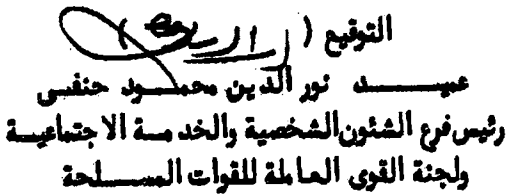 التوقيع ( )
عميد نور الدين محمود حنفى
رئيس فرع الشئون الشخصية والخدمة الاجتماعية
ولجنة القوى العاملة للقوات المسلحة